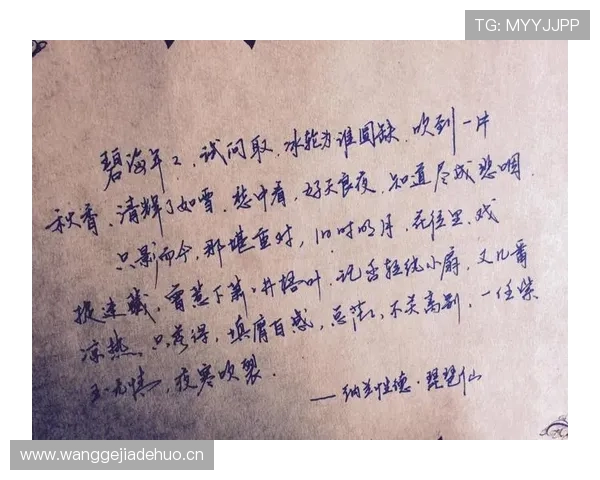 TG: MYYJJPP
碧海年2,试问取、冰轮为谁圆缺、吹到一片
秋香、清辉了如雪.愁中看、好天良夜、知道尽成悲咽.
只影而今,那堪重对,旧时明月、花径里、戏
捉迷藏,曾惹下萧2井梧叶.记否轻纨小扇、又几番
凉热.只落得,填膺百感,总茫2、不关离别,一任紫
玉无情,夜寒吹裂.
——纳兰性德·琵琶仙
www.wanggejiadehuo.cn